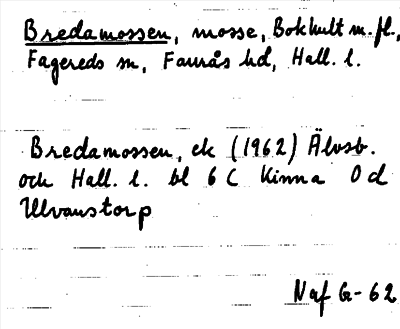 Bredamossen, mosse, Bokhult m. fl.,
Fagereds sn, Faurås hd, Hall. l.
Bredamossen, ek (1962) Älvsb.
och Hall. l. bl 6 C Kinna 0 d
Ulvanstorp
Naf G-62